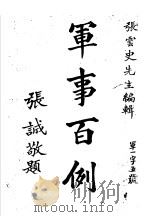 張雲史先生主編輯
軍一字五號
軍事百例
張誠敬題